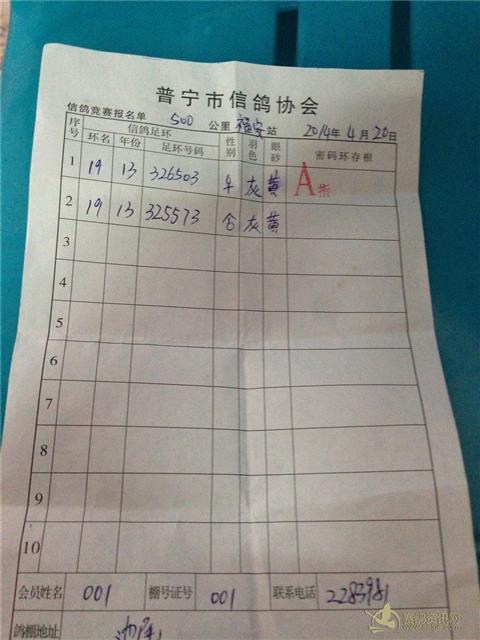 普宁市信鸽协会
信鸽竞赛报名单 500 公里 福安 站 2014年4月20日
序号 信鸽足环 性别 羽色 眼砂 密码环存根
环名 年份 足环号码
1 19 13 326503 灰 黄 A指
2 19 13 325573 灰 黄
3
4
5
6
7
8
9
10
会员姓名 001 棚号证号 001 联系电话 2283981
鸽棚地址
赛鸽资讯网